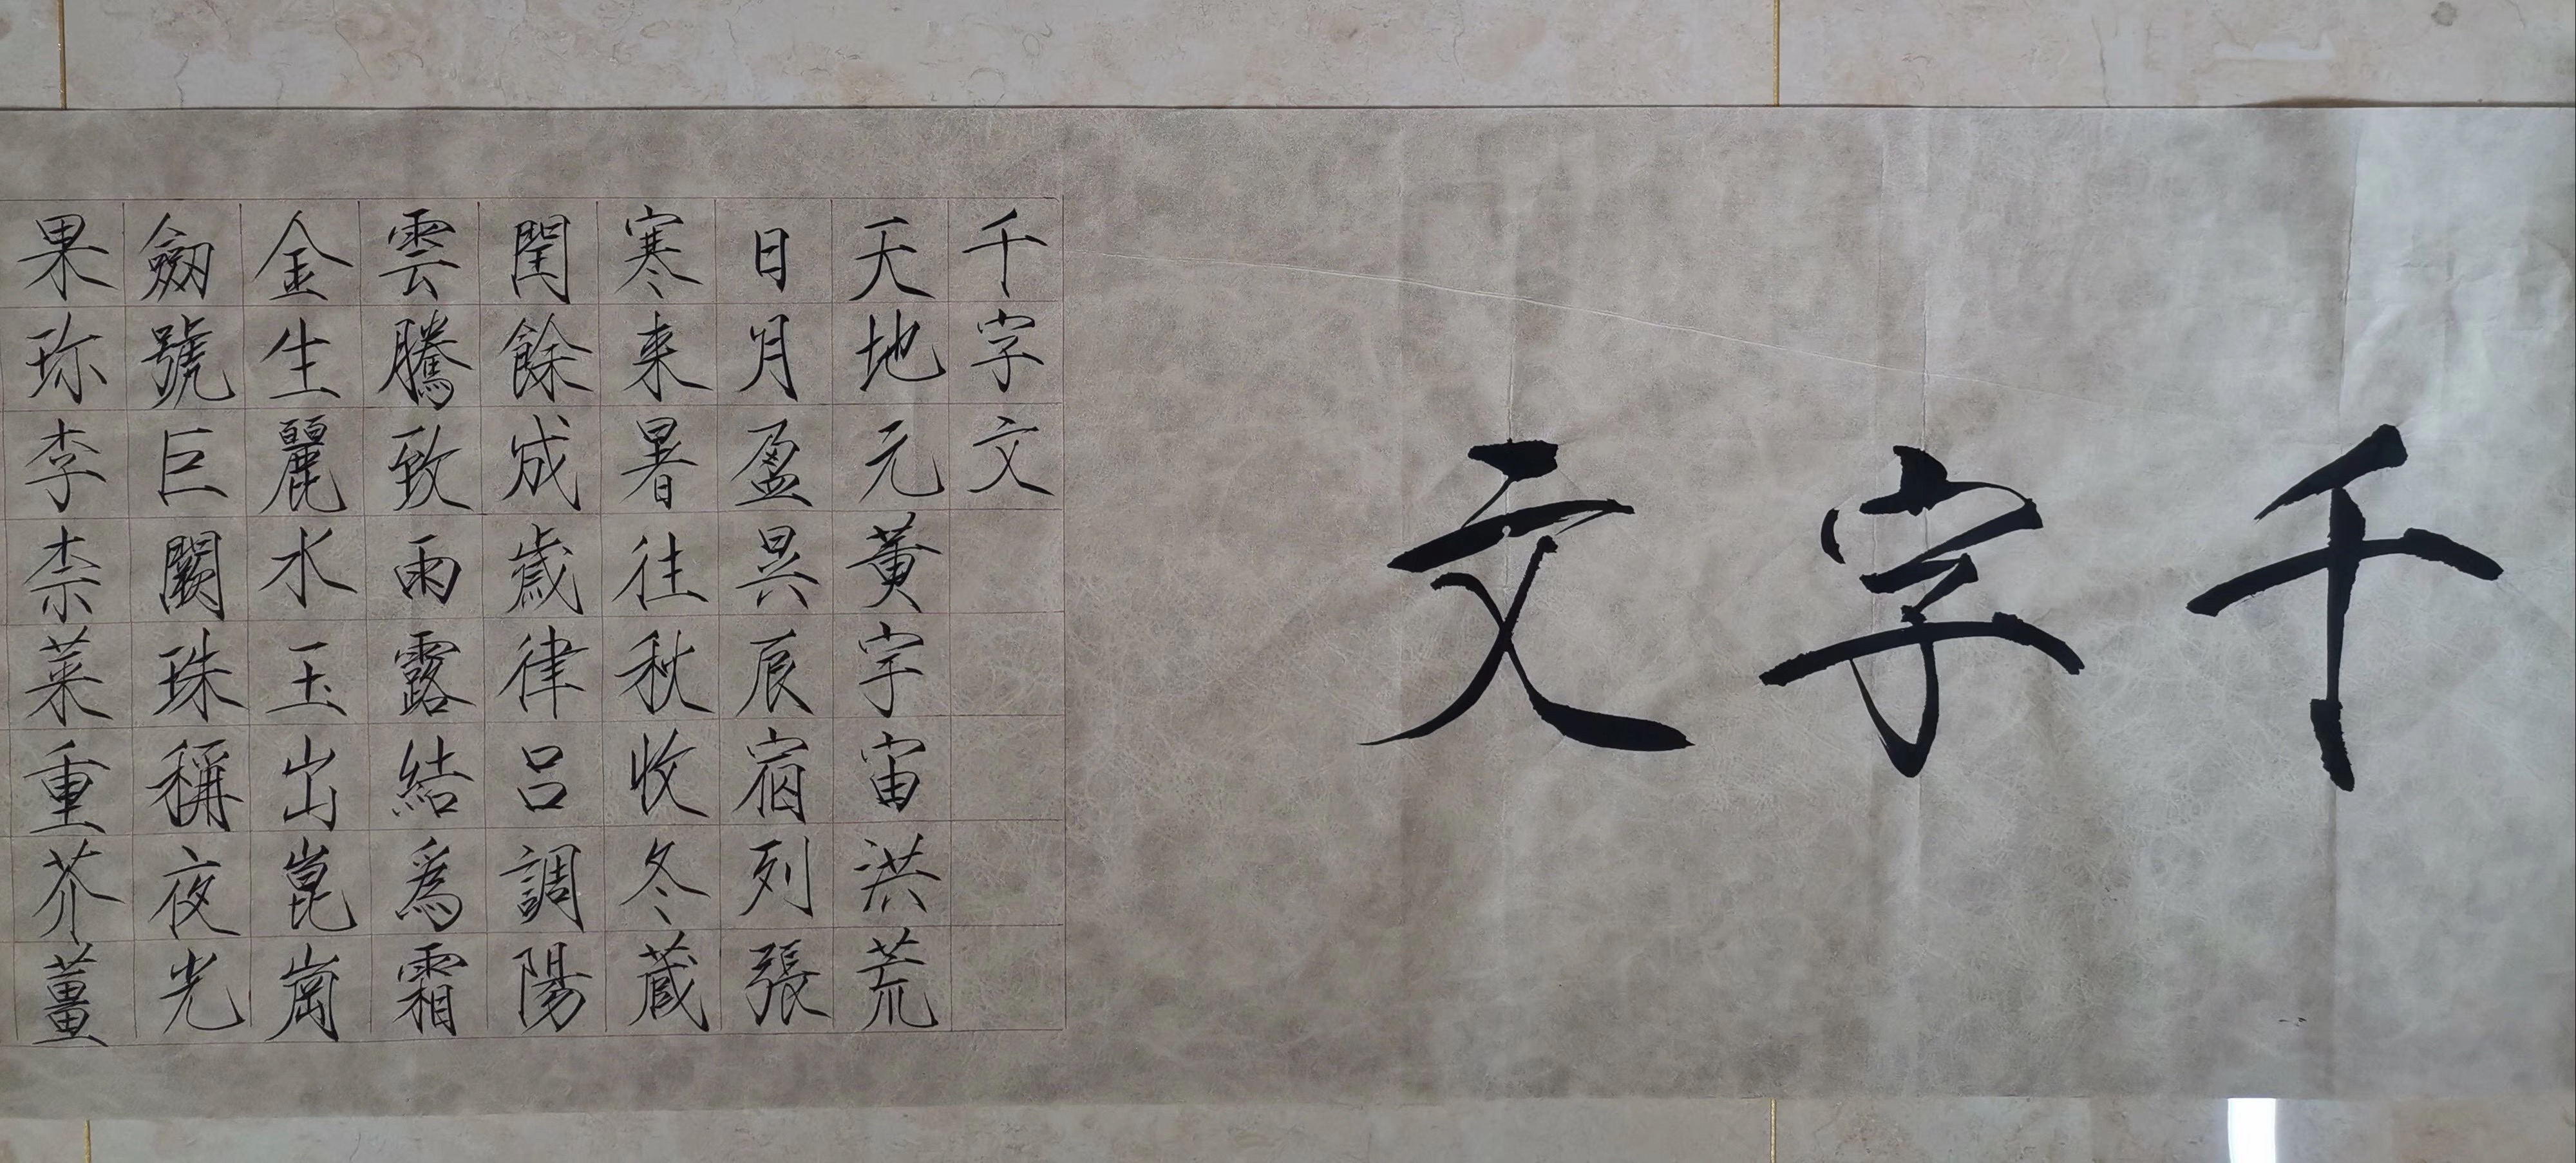 千字文
千字文
天地元黃宇宙洪荒
日月盈昃辰宿列張
寒来暑往秋收冬蔵
閏餘成歲律呂調陽
雲騰致雨露結為霜
金生麗水玉出崑崗
劒號巨闕珠稱夜光
果珎李柰菜重芥薑